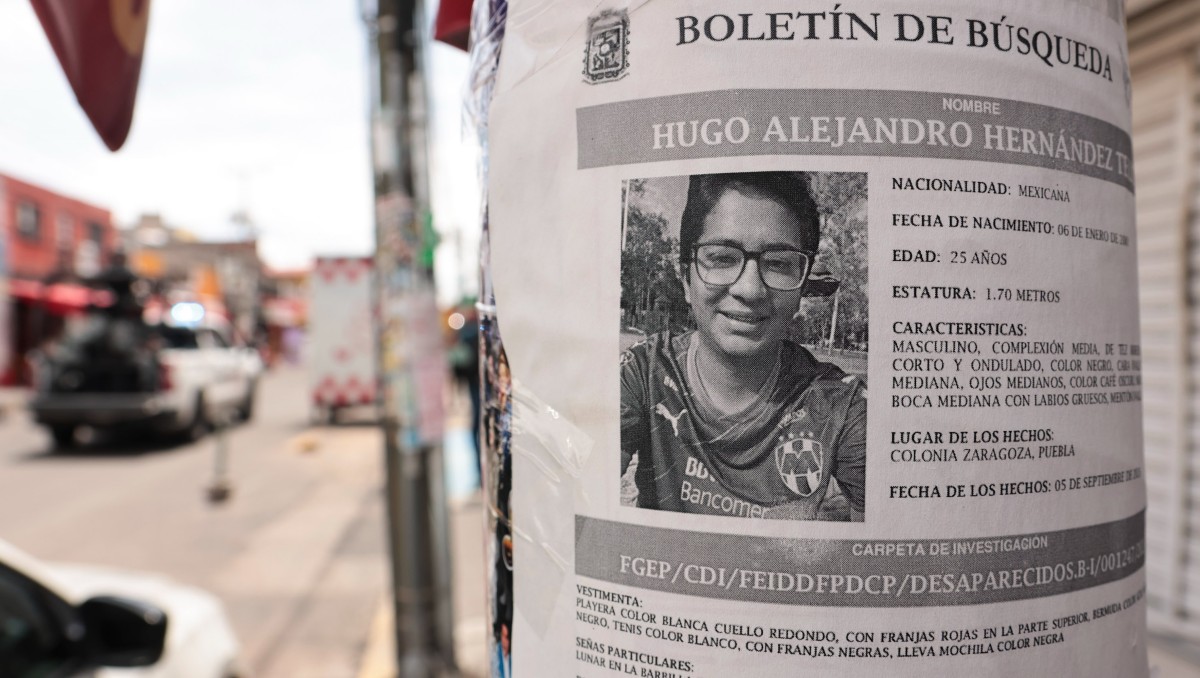 BOLETÍN DE BÚSQUEDA
NOMBRE
HUGO ALEJANDRO HERNÁNDEZ
NACIONALIDAD: MEXICANA
FECHA DE NACIMIENTO: 06 DE ENERO DE
EDAD: 25 AÑOS
ESTATURA: 1.70 METROS
CARACTERISTICAS:
MASCULINO, COMPLEXIÓN MEDIA, DE TEZ
CORTO Y ONDULADO, COLOR NEGRO, CARA
MEDIANA, OJOS MEDIANOS, COLOR CAFÉ
BOCA MEDIANA CON LABIOS GRUESOS,
LUGAR DE LOS HECHOS:
COLONIA ZARAGOZA, PUEBLA
FECHA DE LOS HECHOS: 05 DE SEPTIEMBRE
Bancomer
CARPETA DE INVESTIGACION
FGEP/CDI/FEIDDFPDCP/DESAPARECIDOS.B-I/001247
VESTIMENTA:
PLAYERA COLOR BLANCA CUELLO REDONDO, CON FRANJAS ROJAS EN LA PARTE SUPERIOR, BERMUDA COLOR
NEGRO, TENIS COLOR BLANCO, CON FRANJAS NEGRAS, LLEVA MOCHILA COLOR NEGRA
SEÑAS PARTICULARES:
LUNAR EN LA BARBILLA